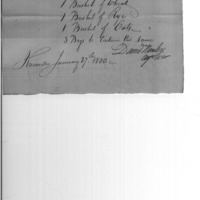 1 Bushel of Wheat
1 Bushel of Rye
1 Bushel of Oats
3 Bags to Contain the same
January 27th 1880